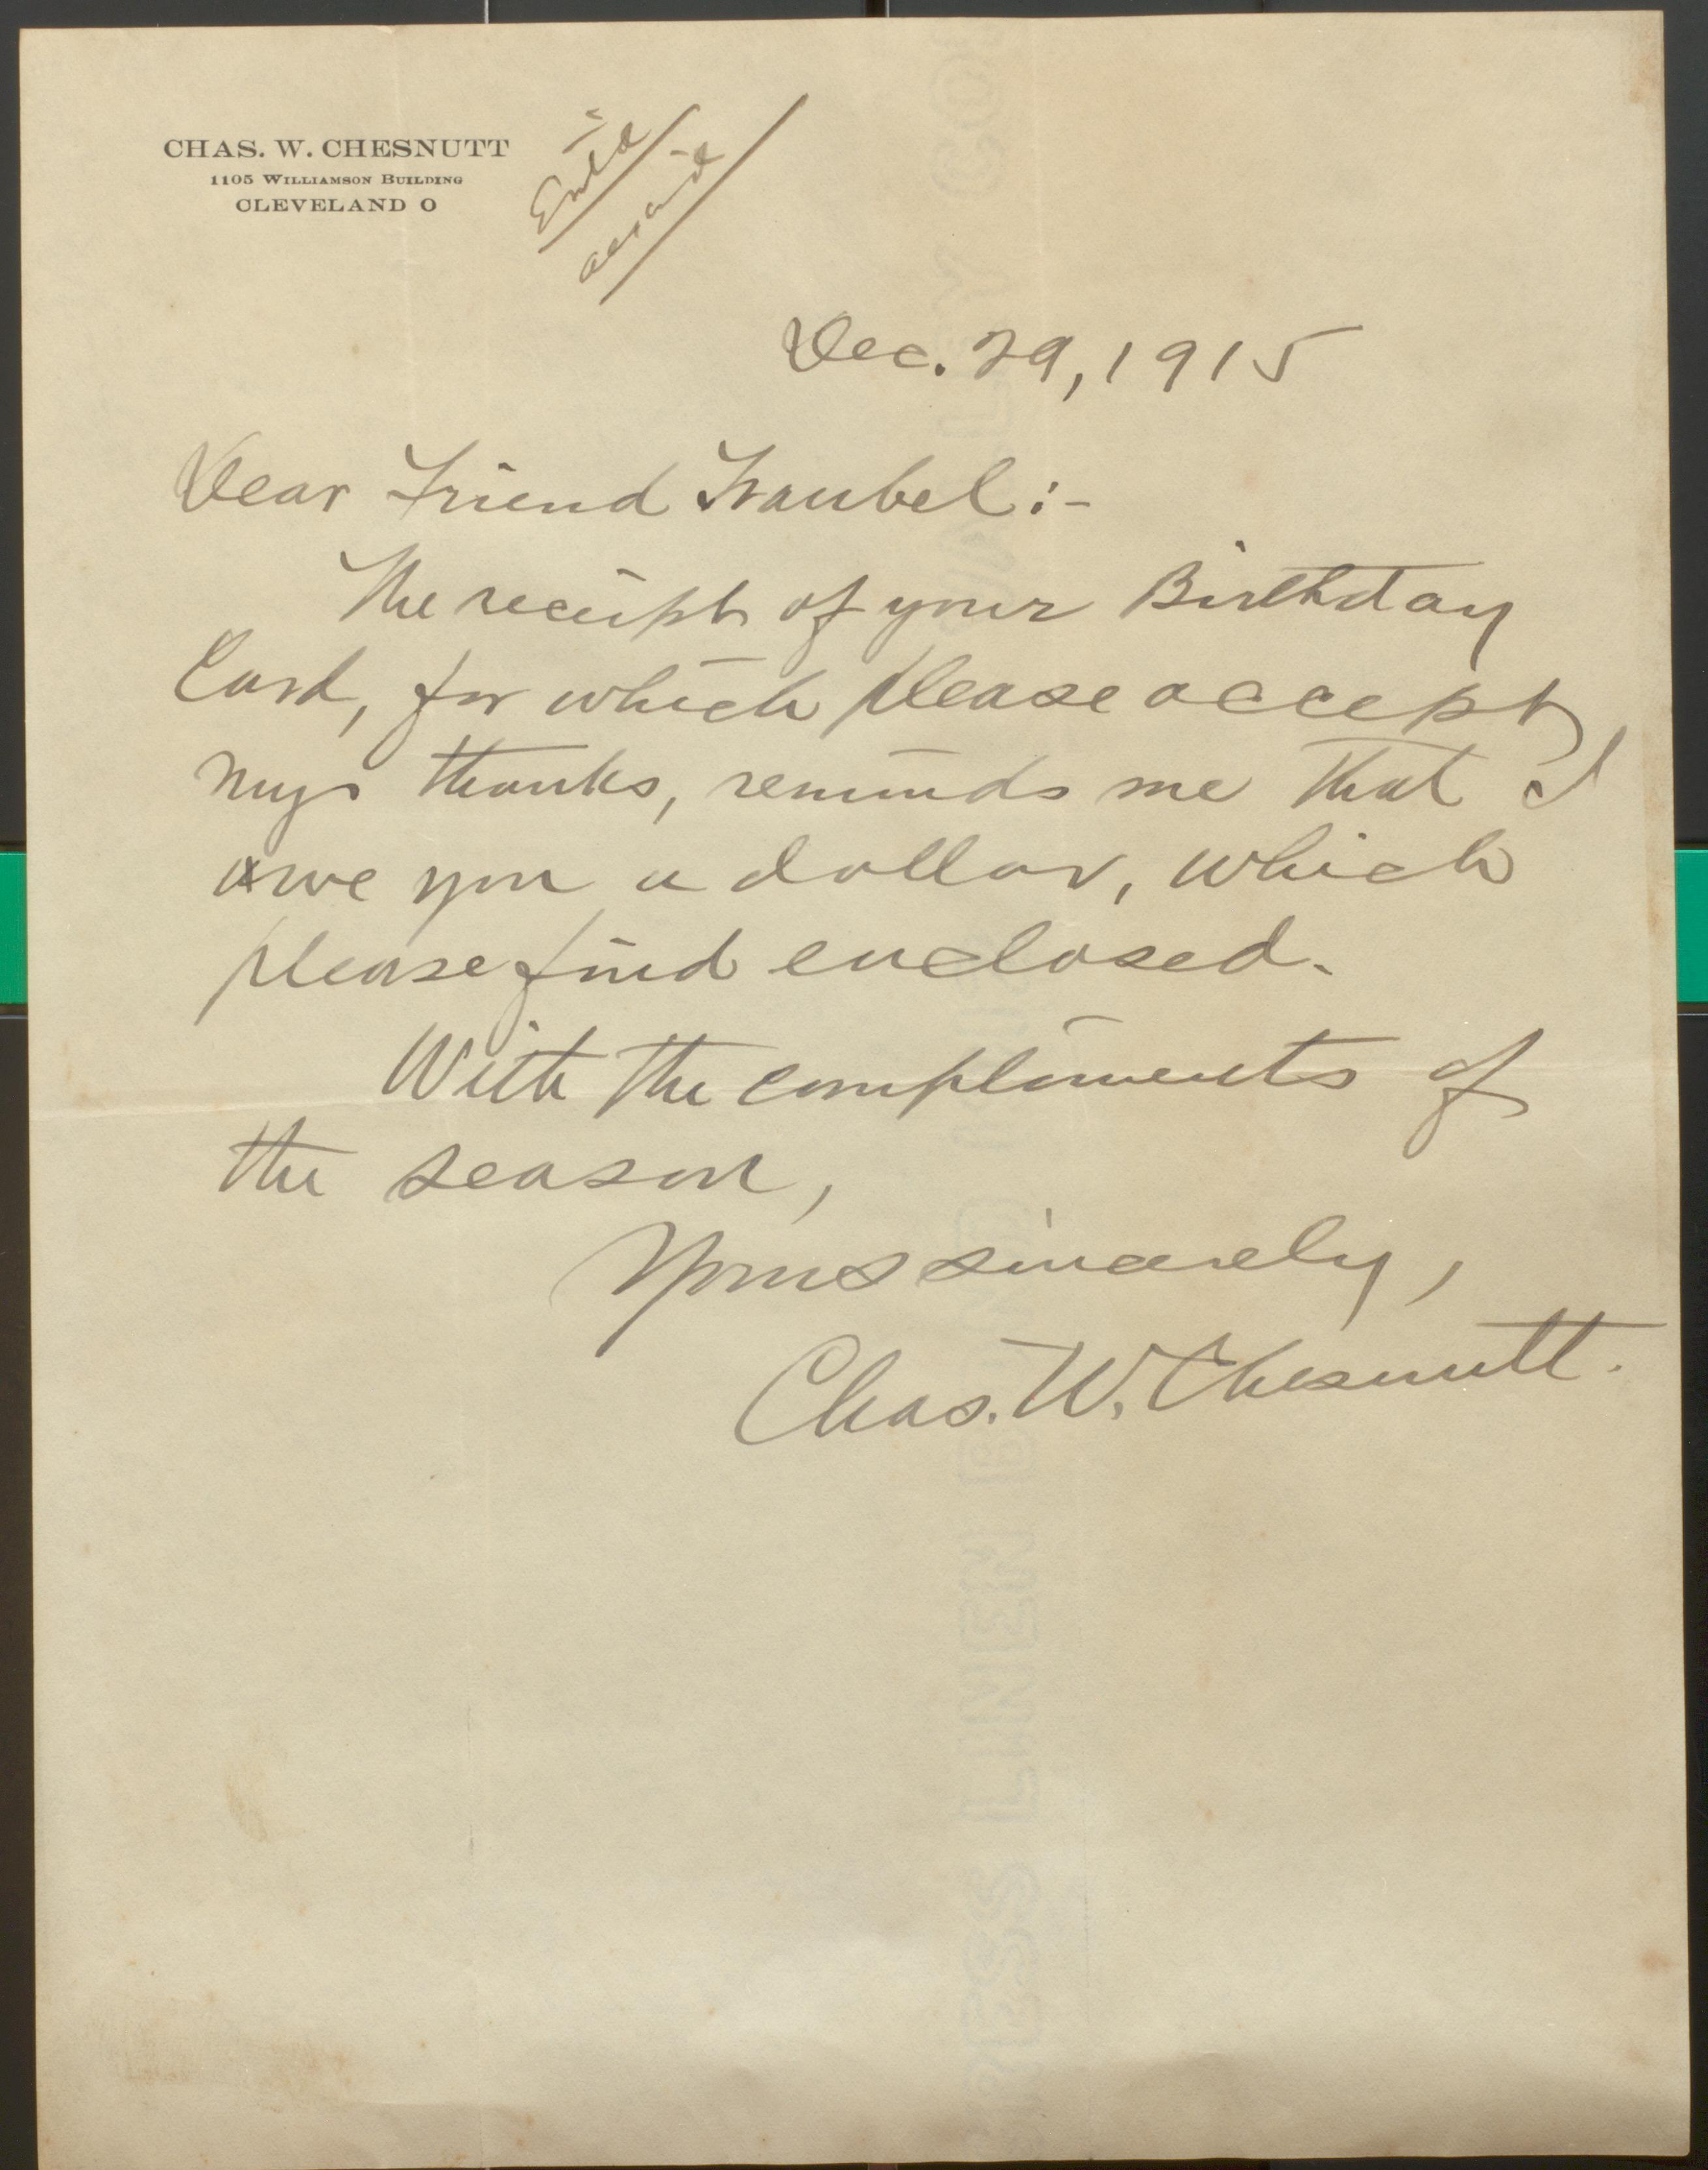 CHAS. W. CHESNUTT
1105 WILLIAMSON BUILDING
CLEVELAND O
Ent'd
Dec. 29, 1915
Dear Friend Traubel:-
The receipt of your Birthday
Card, for which please accept
my thanks, reminds me that I
owe you a dollar, which
please find enclosed.
With the compliments of
the season,
Yours sincerely,
Chas. W. Chesnutt.